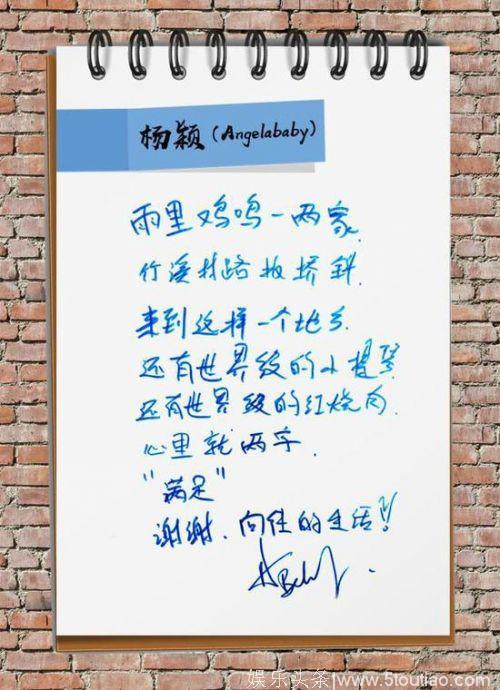 杨颖(Angelababy)
雨里鸡鸣一两家.
竹溪村路板桥斜.
来到这样一个地方.
还有世界级的小提琴
还有世界级的红烧肉.
心里就两字.
"满足"
谢谢.向往的生活!!
娱乐头条|www.5toutiao.com